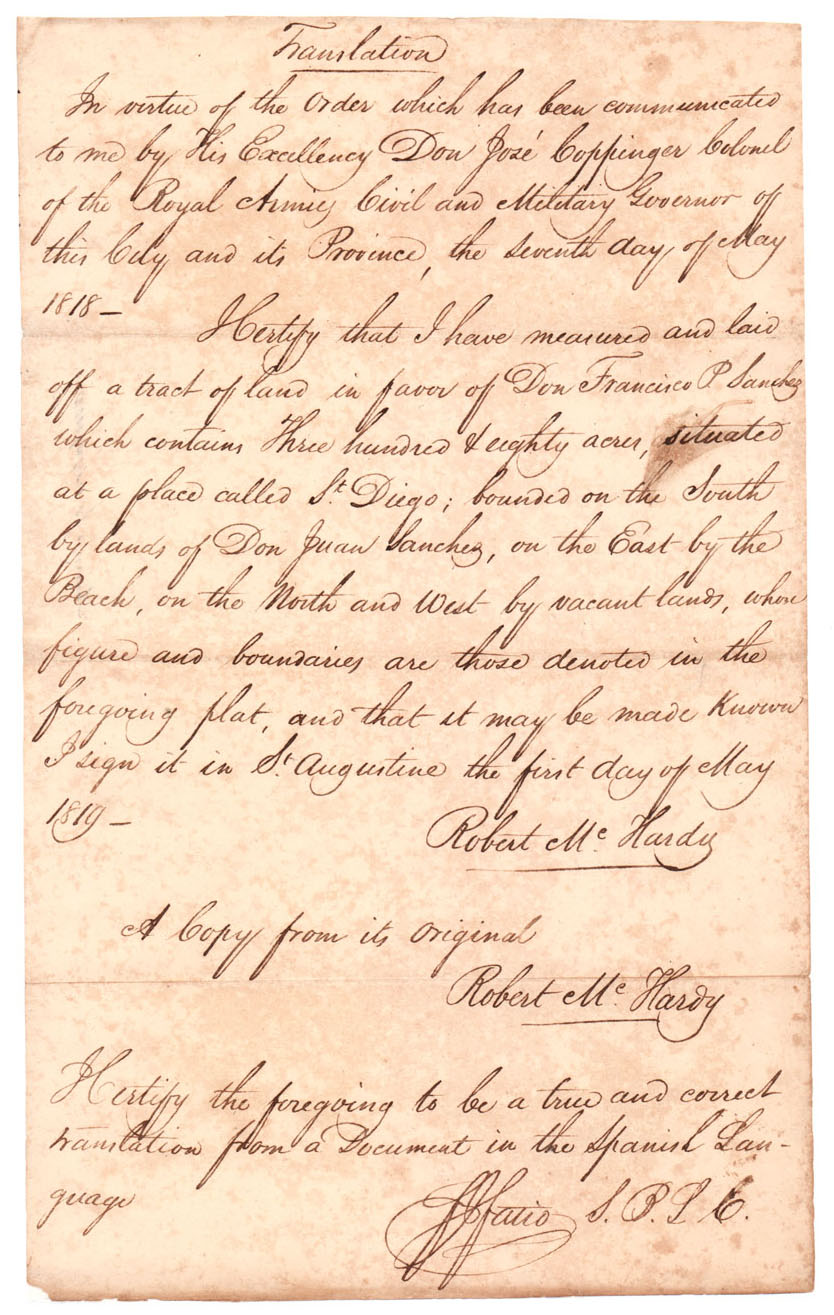 Translation
In virtue of the Order which has been communicated
to me by His Excellency Don José Coppinger Colonel
of the Royal Armies Civil and Military Governor of
this City and its Province, the seventh day of May
1818 –
I Certify that I have measured and laid
off a tract of land in favor of Don Francisco P. Sanchez
which contains Three hundred & eighty acres, situated
at a place called St. Diego; bounded on the South
by lands of Don Juan Sanchez, on the East by the
Beach, on the North and West by vacant lands, whose
figure and boundaries are those denoted in the
foregoing plat, and that it may be made Known
I sign it in St. Augustine the first day of May
1819 –
Robert Mc. Hardy
A Copy from its Original
Robert Mc. Hardy
I Certify the foregoing to be a true and correct
translation from a Document in the Spanish Lan-
guage
F J Fatio S. B. L. C.